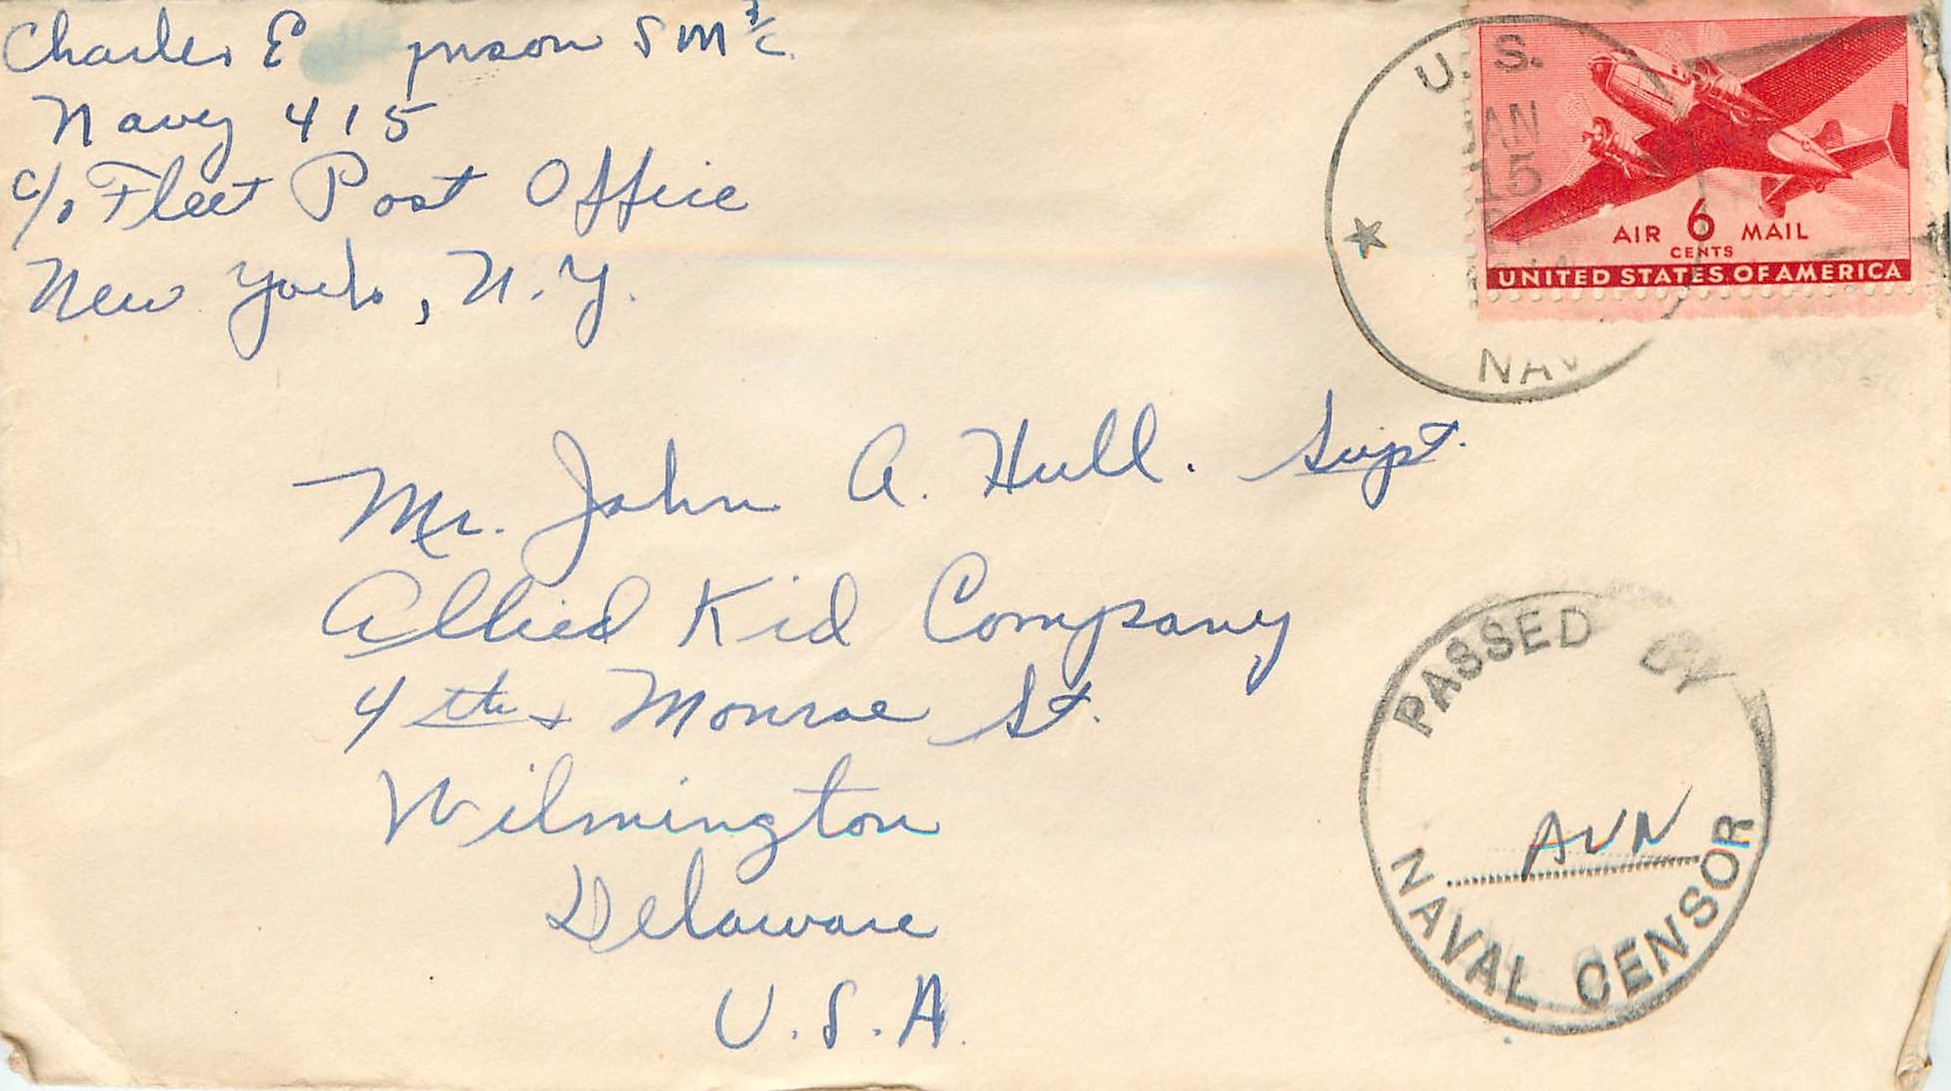 Charles E
Navy 415
c/o Fleet Post Office
New York, N.Y.
U. S.
JAN
15
NAV
AIR 6 MAIL
CENTS
UNITED STATES OF AMERICA
Mr. John A. Hull. Supt.
Allied Kid Company
4th & Monroe St.
Wilmington
Delaware
U.S.A.
PASSED BY
AVN
NAVAL CENSOR